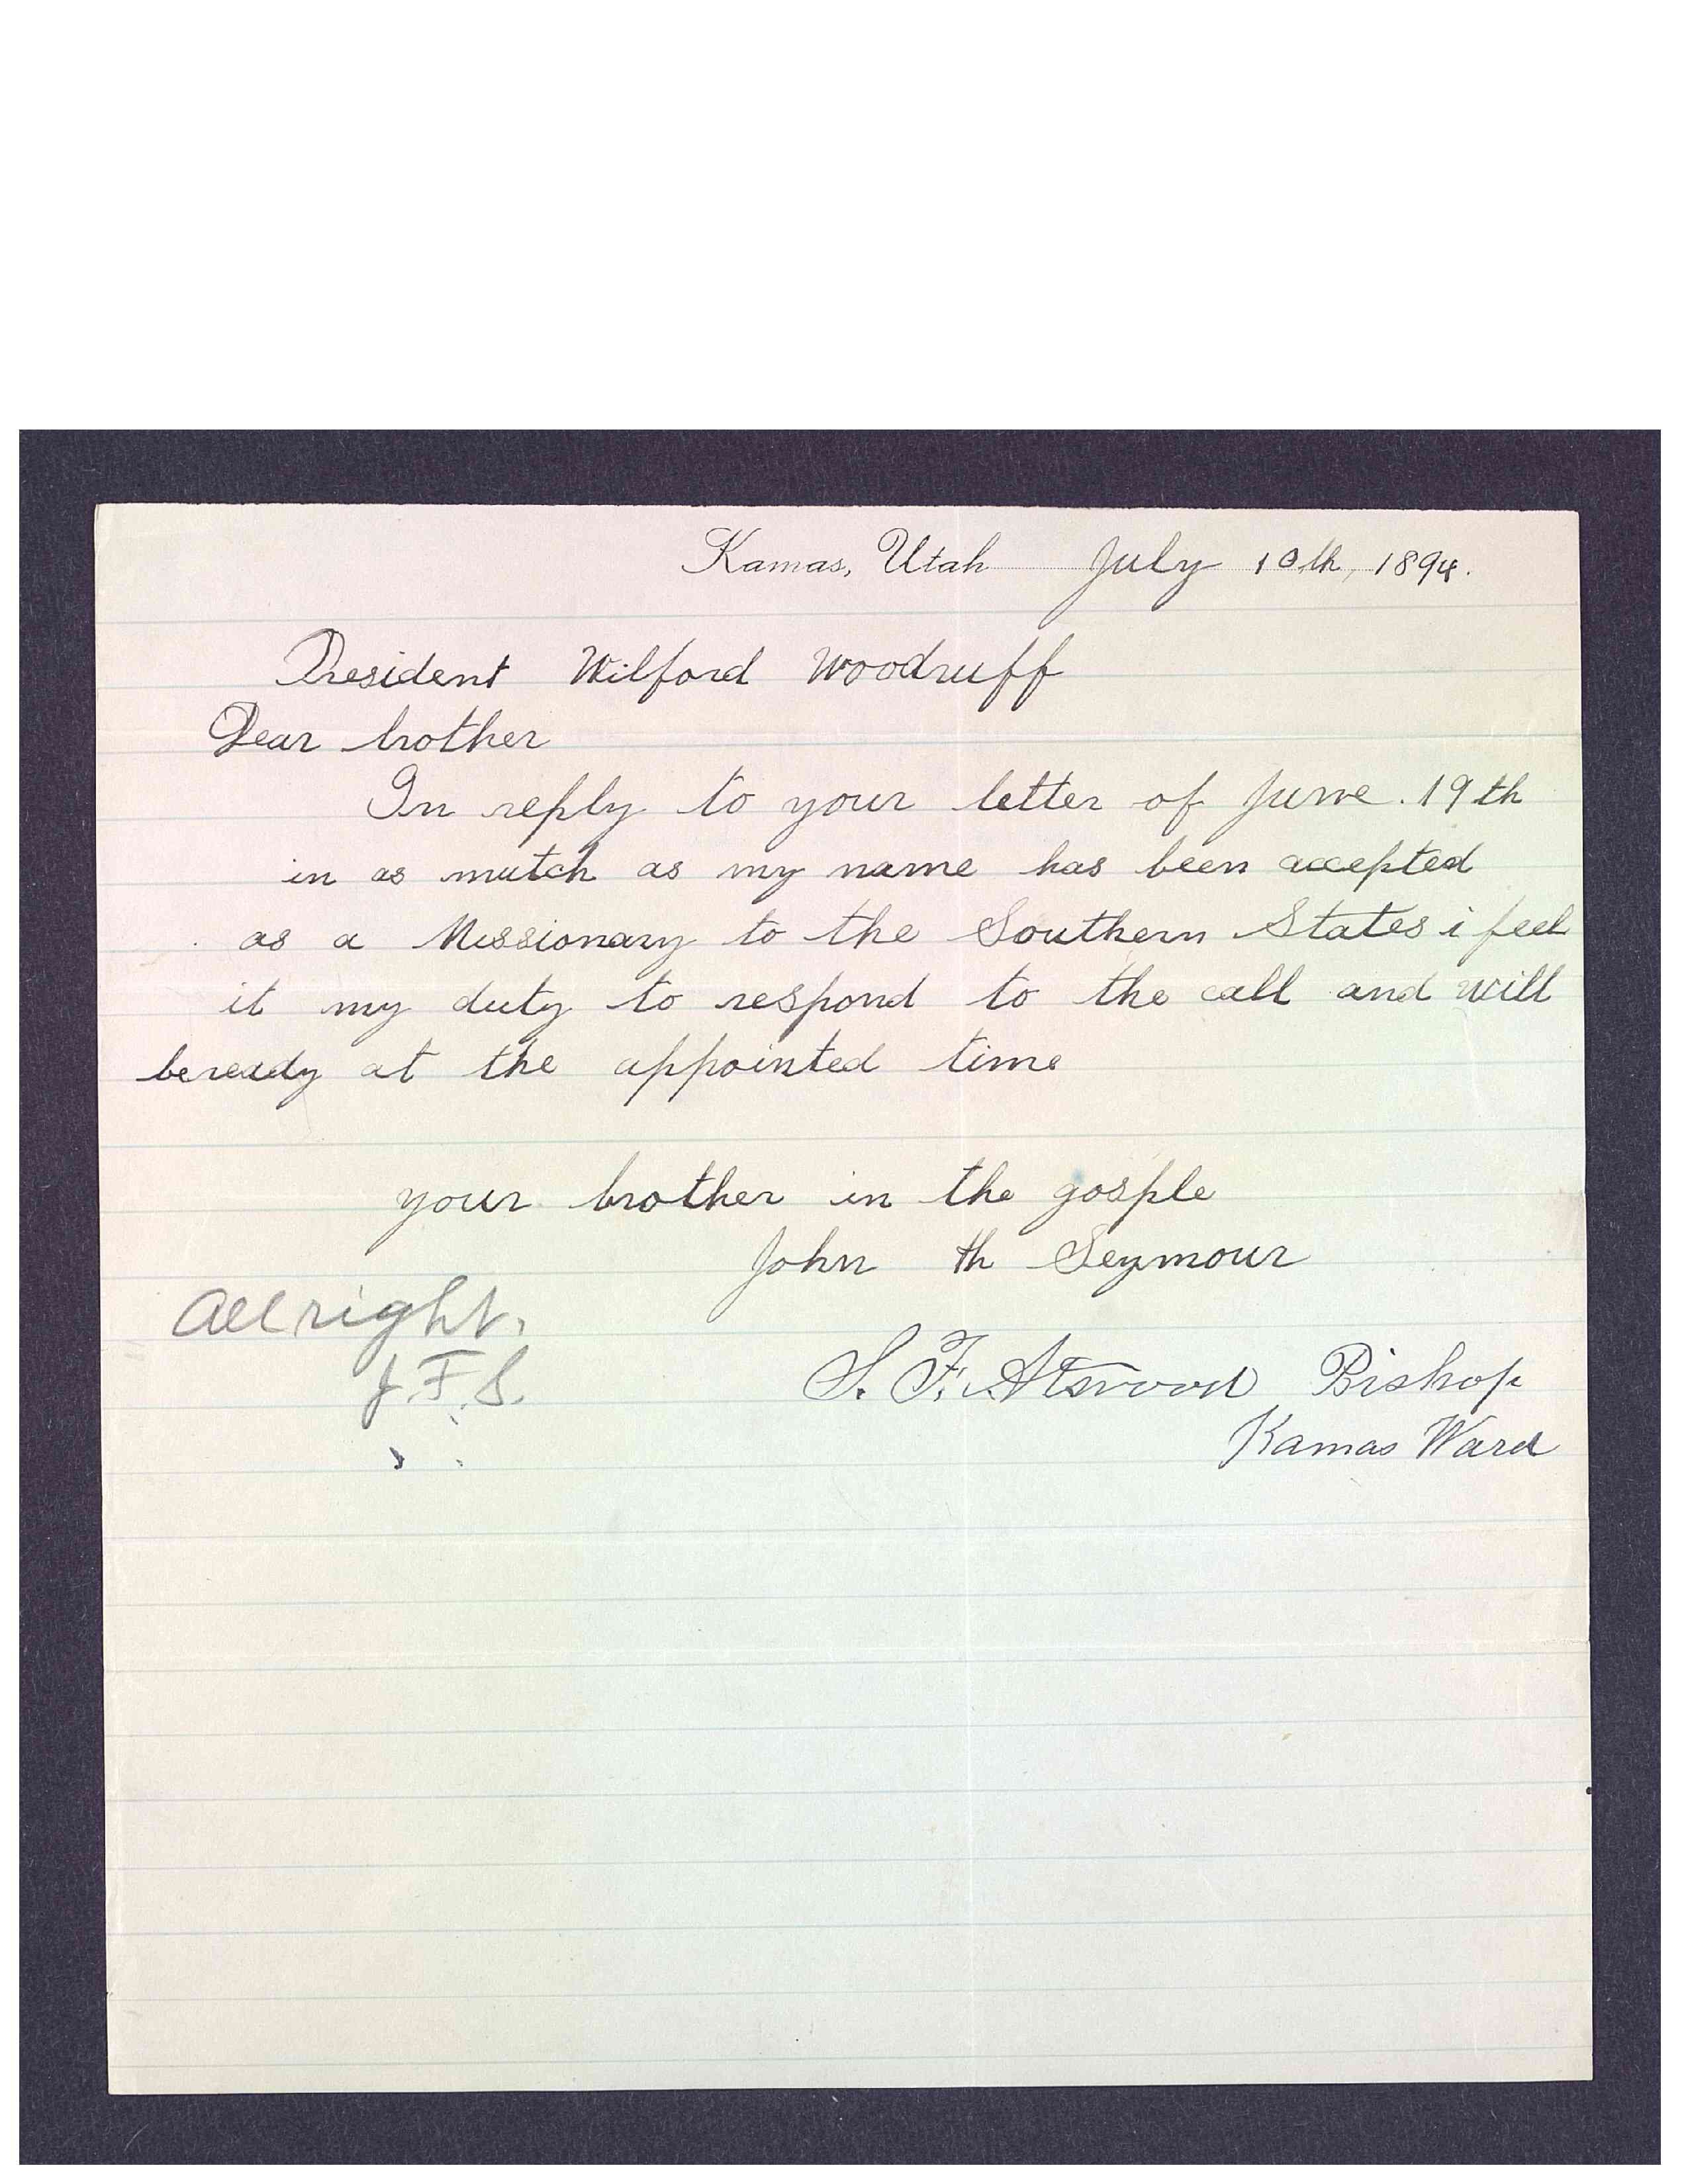 Kamas, Utah July 10th, 1894.
President Wilford Woodruff
Dear brother
In reply to your letter of June. 19th
in as mutch as my name has been accepted
as a Missionary to the Southern States i feel
it my duty to respond to the call and will
beready at the appointed time
your brother in the gosple
John th Seymour
All right.
J. F. S.
S. F. Atwood Bishop
Kamas Ward